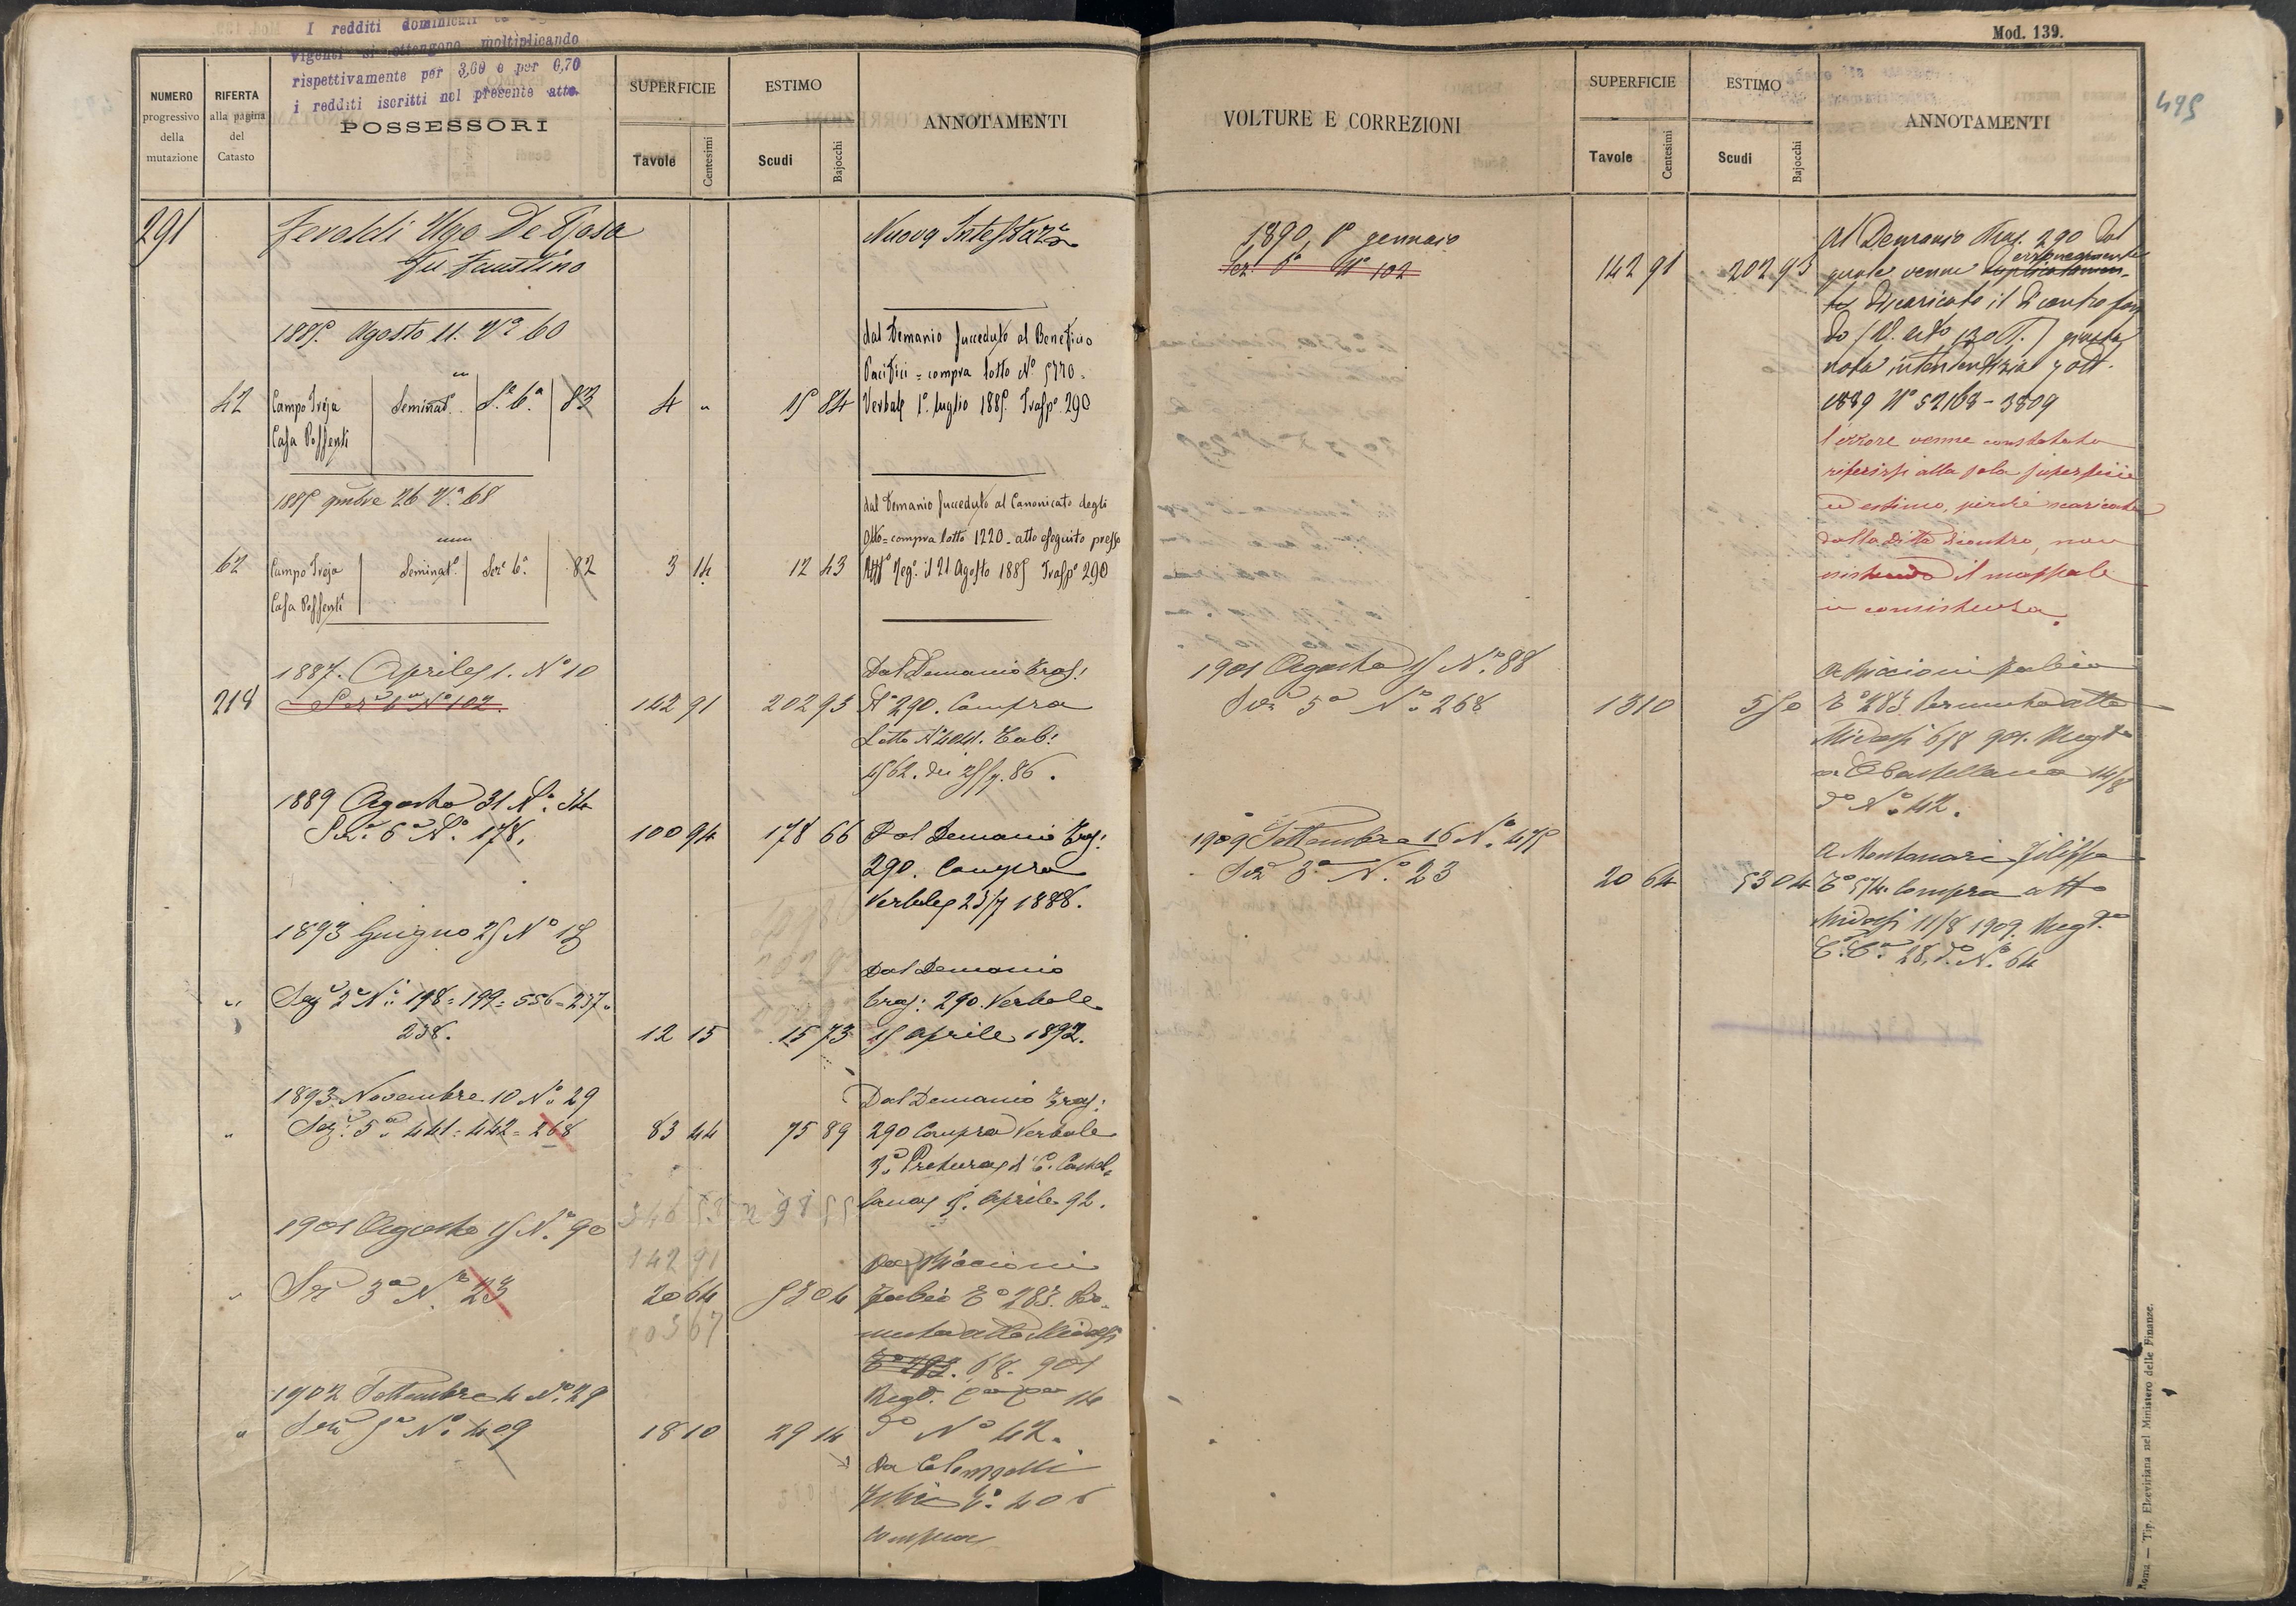 I redditi dominicali
vigenti si ottengono moltiplicando
rispettivamente per 3,60 e per 0,70
i redditi iscritti nel presente atto.
NUMERO
progressivo
della
mutazione
RIFERTA
alla pagina
del
Catasto
POSSESSORI
SUPERFICIE
Tavole
Centesimi
ESTIMO
Scudi
Bajocchi
ANNOTAMENTI
291
Feroldi Ugo De Rosa
fu Faustino
Nuova
1885. Agosto 11. N° 60
dal Demanio succeduto al Beneficio
Pacifici = compra lotto N° 5770.
42 Campo Treja Seminat°. S.a 6.a 83 4 " 15 84 Verbale 1° luglio 1885. Trasp° 290
Casa Possenti
1885 9mbre 26 N.° 68
dal Demanio succeduto al Canonicato degli
Otto = compra lotto 1220 - atto eseguito presso
62 Campo Treja Seminat°. Sez.e 6.a 82 3 14 12 43 il 21 Agosto 1885 Trasp° 290
Casa Possenti
1887. Aprile 1. N° 10
Dal Demanio Tras:
218 Sez.e 6a N° 102. 142 91 202 95 N° 290. Compra
Lotto N° 4041. Tab:
4562. dei 25/7. 86.
1889 Agosto 31 N.° 34
Sez.e 6a N.° 178. 100 94 178 66 Dal Demanio Tras:
290. Compra
Verbale 23/7 1888.
1893 Giugno 25 N° 18
Dal Demanio
" Sez.e 2a N.i 198 = 199 = 556 = 237 = Tras: 290. Verbale
238. 12 15 15 73 15 Aprile 1892.
1893 Novembre 10 N.° 29
Dal Demanio Tras:
" Sez.e 5.a 441 = 442 = 268 83 44 75 89 290 Compra Verbale
Pretura di C. Castel=
346 53
lana 5. Aprile 92.
1901 Agosto 15 N.° 90
142 91
Da Piccioni
" Sez 3a N.° 23 20 64 53 04 Fabio T° 283. Per=
203 67
muta atto Midossi
T° 283. 6.8. 901
1902 Settembre 4 N.° 29
Regt. 14
" Sez 5a N.° 409 18 10 29 14 d° N° 42.
da
T.° 406
compra
Mod. 139.
495
VOLTURE E CORREZIONI
SUPERFICIE
Tavole
Centesimi
ESTIMO
Scudi
Bajocchi
ANNOTAMENTI
1890, 1° gennaio
Al Demanio Tras. 290 dal
Sez. 6a N° 102 142 91 202 95 quale venne erroneamente
discaricato il dicontro fon
do
nota intendentizia 7 ott.
1889 N° 52168 - 3809
l'errore venne constatato
riferirsi alla sola superficie
ed estimo, perchè scaricato
dalla Ditta dicontro, non
esistendo il mappale
in consistenza.
1901 Agosto 15 N.° 88
A Piccioni Fabio
Sez 5a N.° 268 13 10 5 50 T° 283 Permuta atto
Midossi 6/8 901. Regt°
a C Castellana 14/8
d° N.° 42.
1909 Settembre 16 N.° 475
A Montanari Filippo
Sez 3.a N.° 23 20 64 53 04 T° 574. Compra atto
Midossi 11/8 1909. Regt°
C.C. 28. d.° N.° 64
Roma — Tip. Elzeviriana nel Ministero delle Finanze.